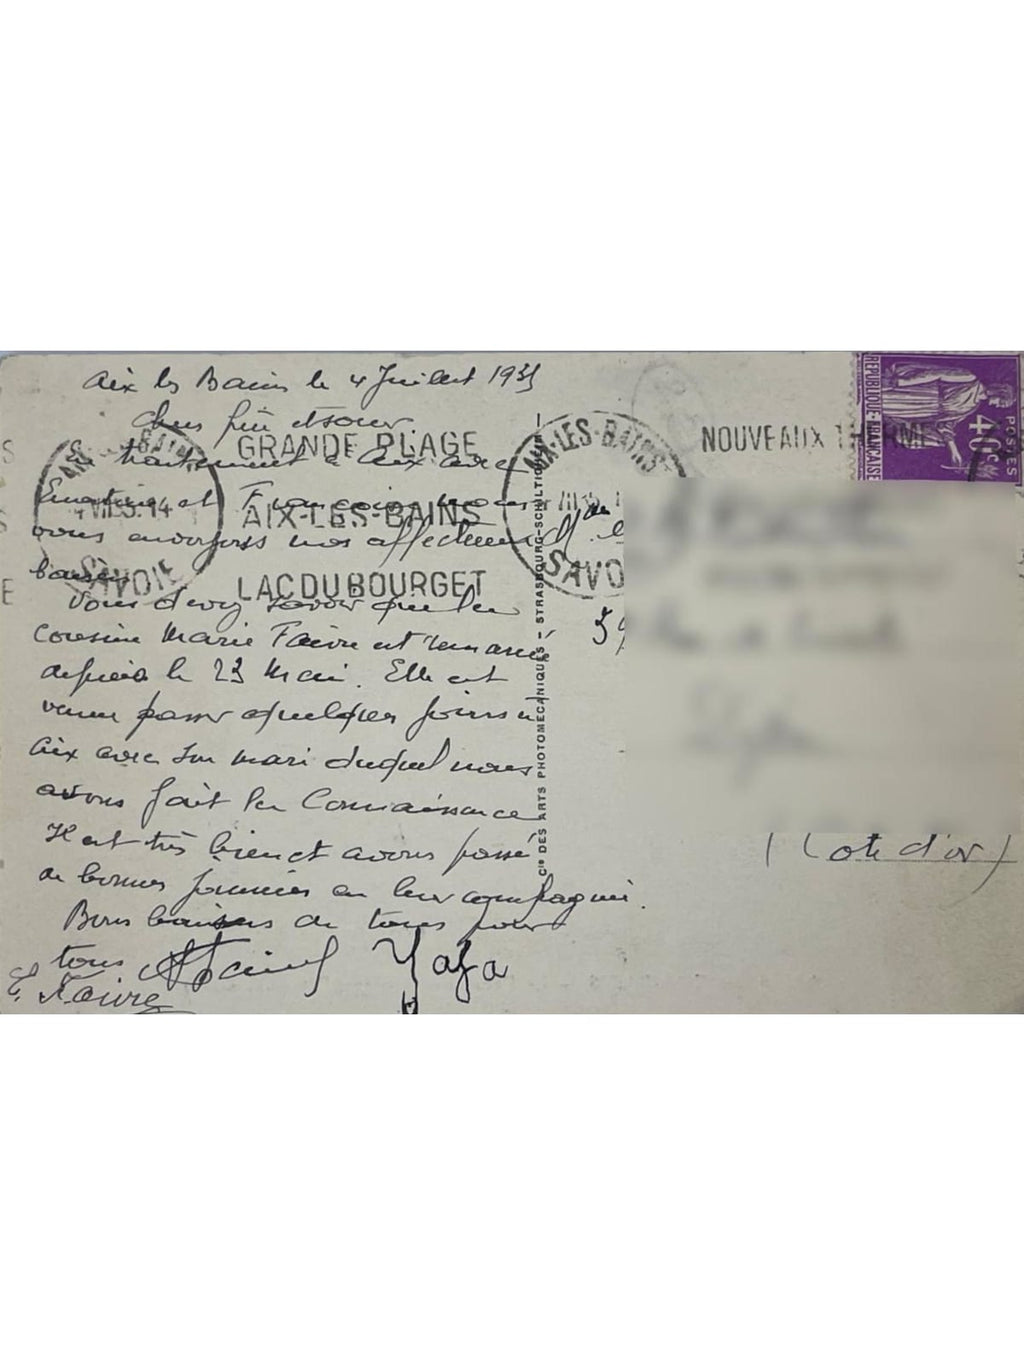 Aix les Bains le 4 Juillet 1935
Chers frère et soeur
En traitement à Aix avec
et Françoise nous
vous envoyons nos affectueux
baisers
Vous devez savoir que la
cousine Marie Faivre est remariée
depuis le 23 Mai. Elle est
venue passer quelques jours à
Aix avec son mari duquel nous
avons fait la connaissance
Il est très bien et avons passé
de bonnes journées en leur compagnie.
Bons baisers de tous pour
tous
Yafa
E. Faivre
GRANDE PLAGE
AIX-LES-BAINS
LAC DU BOURGET
AIX-LES-BAINS
SAVOIE
AIX-LES-BAINS
SAVO
NOUVEAUX THERME
REPUBLIQUE FRANÇAISE
POSTES
40c
Cie DES ARTS PHOTOMECANIQUES - STRASBOURG-SCHILTIGHEIM
(Cote d'or)